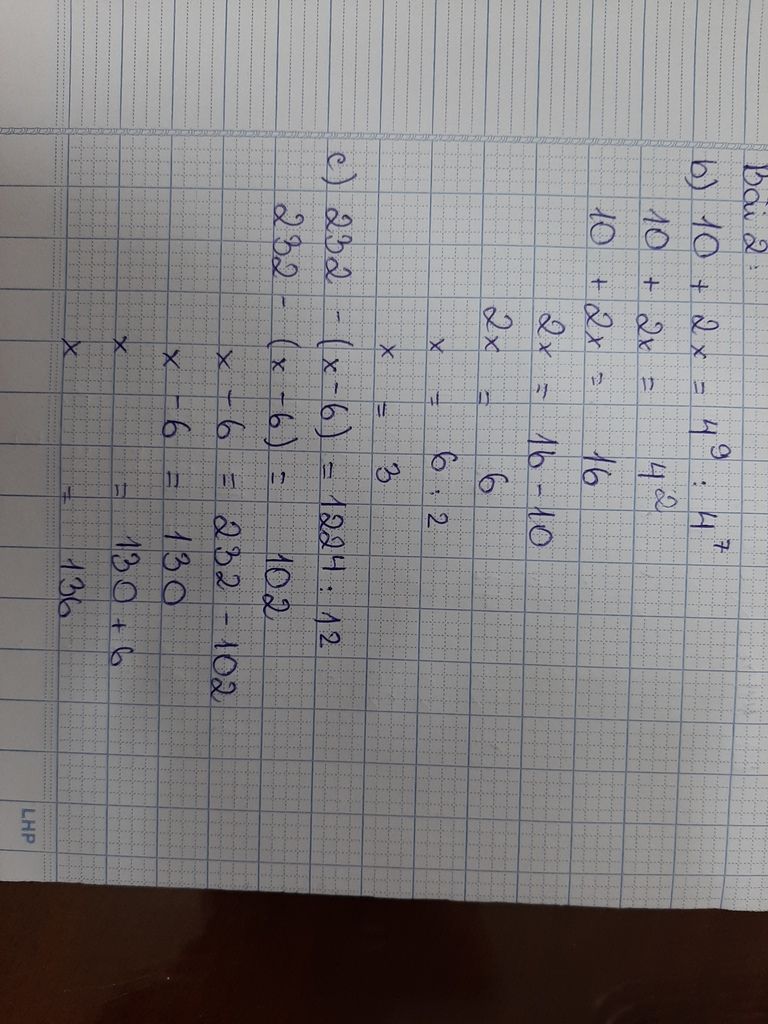 Bài 2:
b) 10 + 2x = 4⁹ : 4⁷
10 + 2x = 4²
10 + 2x = 16
2x = 16 - 10
2x = 6
x = 6 : 2
x = 3
c) 232 - (x - 6) = 1224 : 12
232 - (x - 6) = 102
x - 6 = 232 - 102
x - 6 = 130
x = 130 + 6
x = 136
LHP